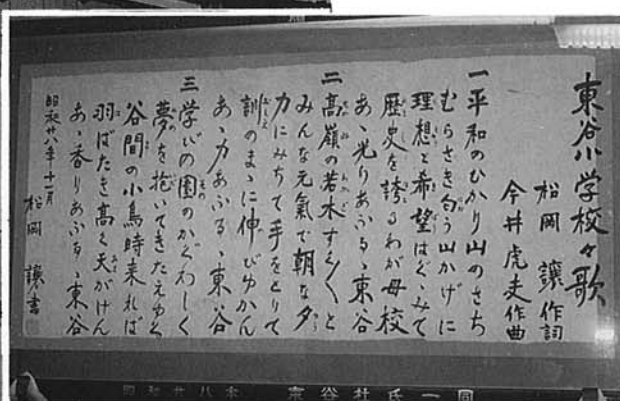 東谷小学校々歌
松岡 譲 作詞
今井虎夫 作曲
一 平和のひかり山のさち
むらさき匂う山かげに
理想と希望はぐゝみて
歴史を誇るわが母校
あゝ光りあふるゝ東谷
二 高嶺の若木すく〱と
みんな元氣で朝な夕
力にみちて手をとりて
訓のまゝに伸びゆかん
あゝ力あふるゝ東谷
三 学びの園のかぐわしく
夢を抱いてきたえゆく
谷間の小鳥時来れば
羽ばたき高く天がけん
あゝ香りあふるゝ東谷
昭和廿八年十一月
松岡 譲書
昭和廿八年
氏一同